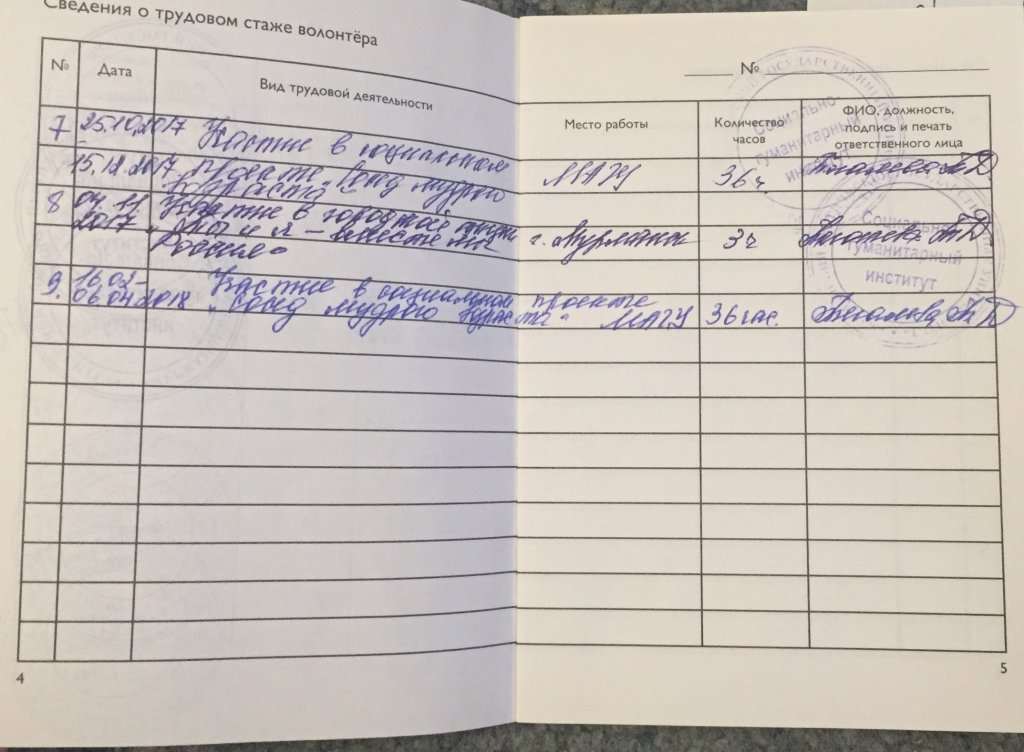 Сведения о трудовом стаже волонтёра
№ Дата Вид трудовой деятельности
7 25.10.2017 Участие в социальном
15.12.2017 проекте „Сад мудрого
возраста"
8 04.11 Участие в городской акции
2017 „Мы и я – вместе мы
Россия"
9. 16.02- Участие в социальном проекте
06.04.2018 „Сад мудрого возраста"
4
№
Место работы Количество часов ФИО, должность, подпись и печать ответственного лица
МАГУ 36 ч
г. Мурманск 3 ч
МАГУ 36 час.
Социально-
гуманитарный
институт
Социально-
гуманитарный
институт
5